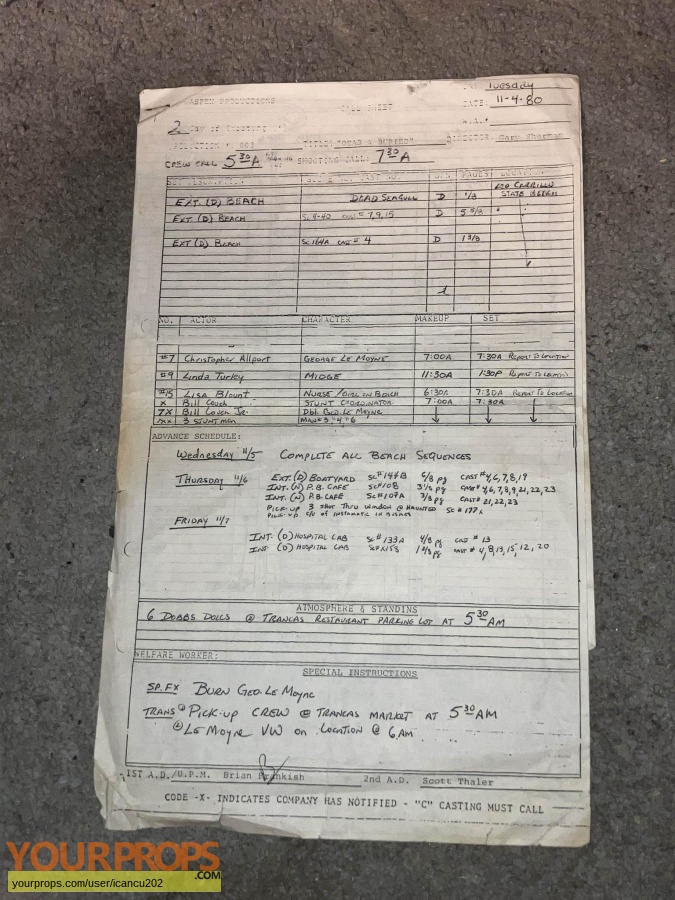 Tuesday
ASPEN PRODUCTIONS CALL SHEET DATE: 11-4-80
2 Day of Shooting
TITLE: "DEAD & BURIED" DIRECTOR: Gary Sherman
CREW CALL 5:30A SHOOTING CALL: 7:30A
SET DESCRIPTION PAGES LOCATION
EXT. (D) BEACH DEAD SEAGULL D 1/8 LEO CARRILLO STATE BEACH
EXT. (D) BEACH Sc 4-40 CAST # 7, 9, 15 D 5 5/8 "
EXT (D) BEACH Sc 164A CAST # 4 D 1 3/8
NO. ACTOR CHARACTER MAKEUP SET
#7 Christopher Allport GEORGE LE MOYNE 7:00A 7:30A REPORT TO LOCATION
#9 Linda Turley MIDGE 11:30A 1:30P REPORT TO LOCATION
#15 LISA BLOUNT NURSE/GIRL ON BEACH 6:30A 7:30A REPORT TO LOCATION
X Bill Couch STUNT COORDINATOR 7:00A 7:30A
7X Bill Couch Jr. Dbl. GEO. LE MOYNE
XXX 3 STUNTMEN MAN #3 #4 #6
ADVANCE SCHEDULE:
Wednesday 11/5 COMPLETE ALL BEACH SEQUENCES
THURSDAY 11/6 EXT. (D) BOATYARD SC# 144B 6/8 pg CAST # 4, 6, 7, 8, 19
INT. (N) P.B. CAFE SC# 108 3 1/8 pg CAST # 4, 6, 7, 8, 9, 21, 22, 23
INT. (N) P.B. CAFE SC# 107A 7/8 pg CAST # 21, 22, 23
PICK-UP 3 SHOT THRU WINDOW @ HAUNTED SC # 177A
PICK-UP C/U OF INSTAMATIC IN
FRIDAY 11/7
INT. (D) HOSPITAL LAB SC# 133A 4/8 pg CAST # 13
INT. (D) HOSPITAL LAB SC# 158 1 pg CAST # 4, 8, 13, 15, 12, 20
ATMOSPHERE & STANDINS
6 DOBBS DOLLS @ TRANCAS RESTAURANT PARKING LOT AT 5:30 AM
WELFARE WORKER:
SPECIAL INSTRUCTIONS
SP. FX BURN GEO. LE MOYNE
TRANS ① PICK-UP CREW @ TRANCAS MARKET AT 5:30 AM
② LE MOYNE VW ON LOCATION @ 6 AM
1ST A.D./U.P.M. Brian Frankish 2nd A.D. Scott Thaler
CODE -X- INDICATES COMPANY HAS NOTIFIED - "C" CASTING MUST CALL
YOURPROPS.COM
yourprops.com/user/icancu202